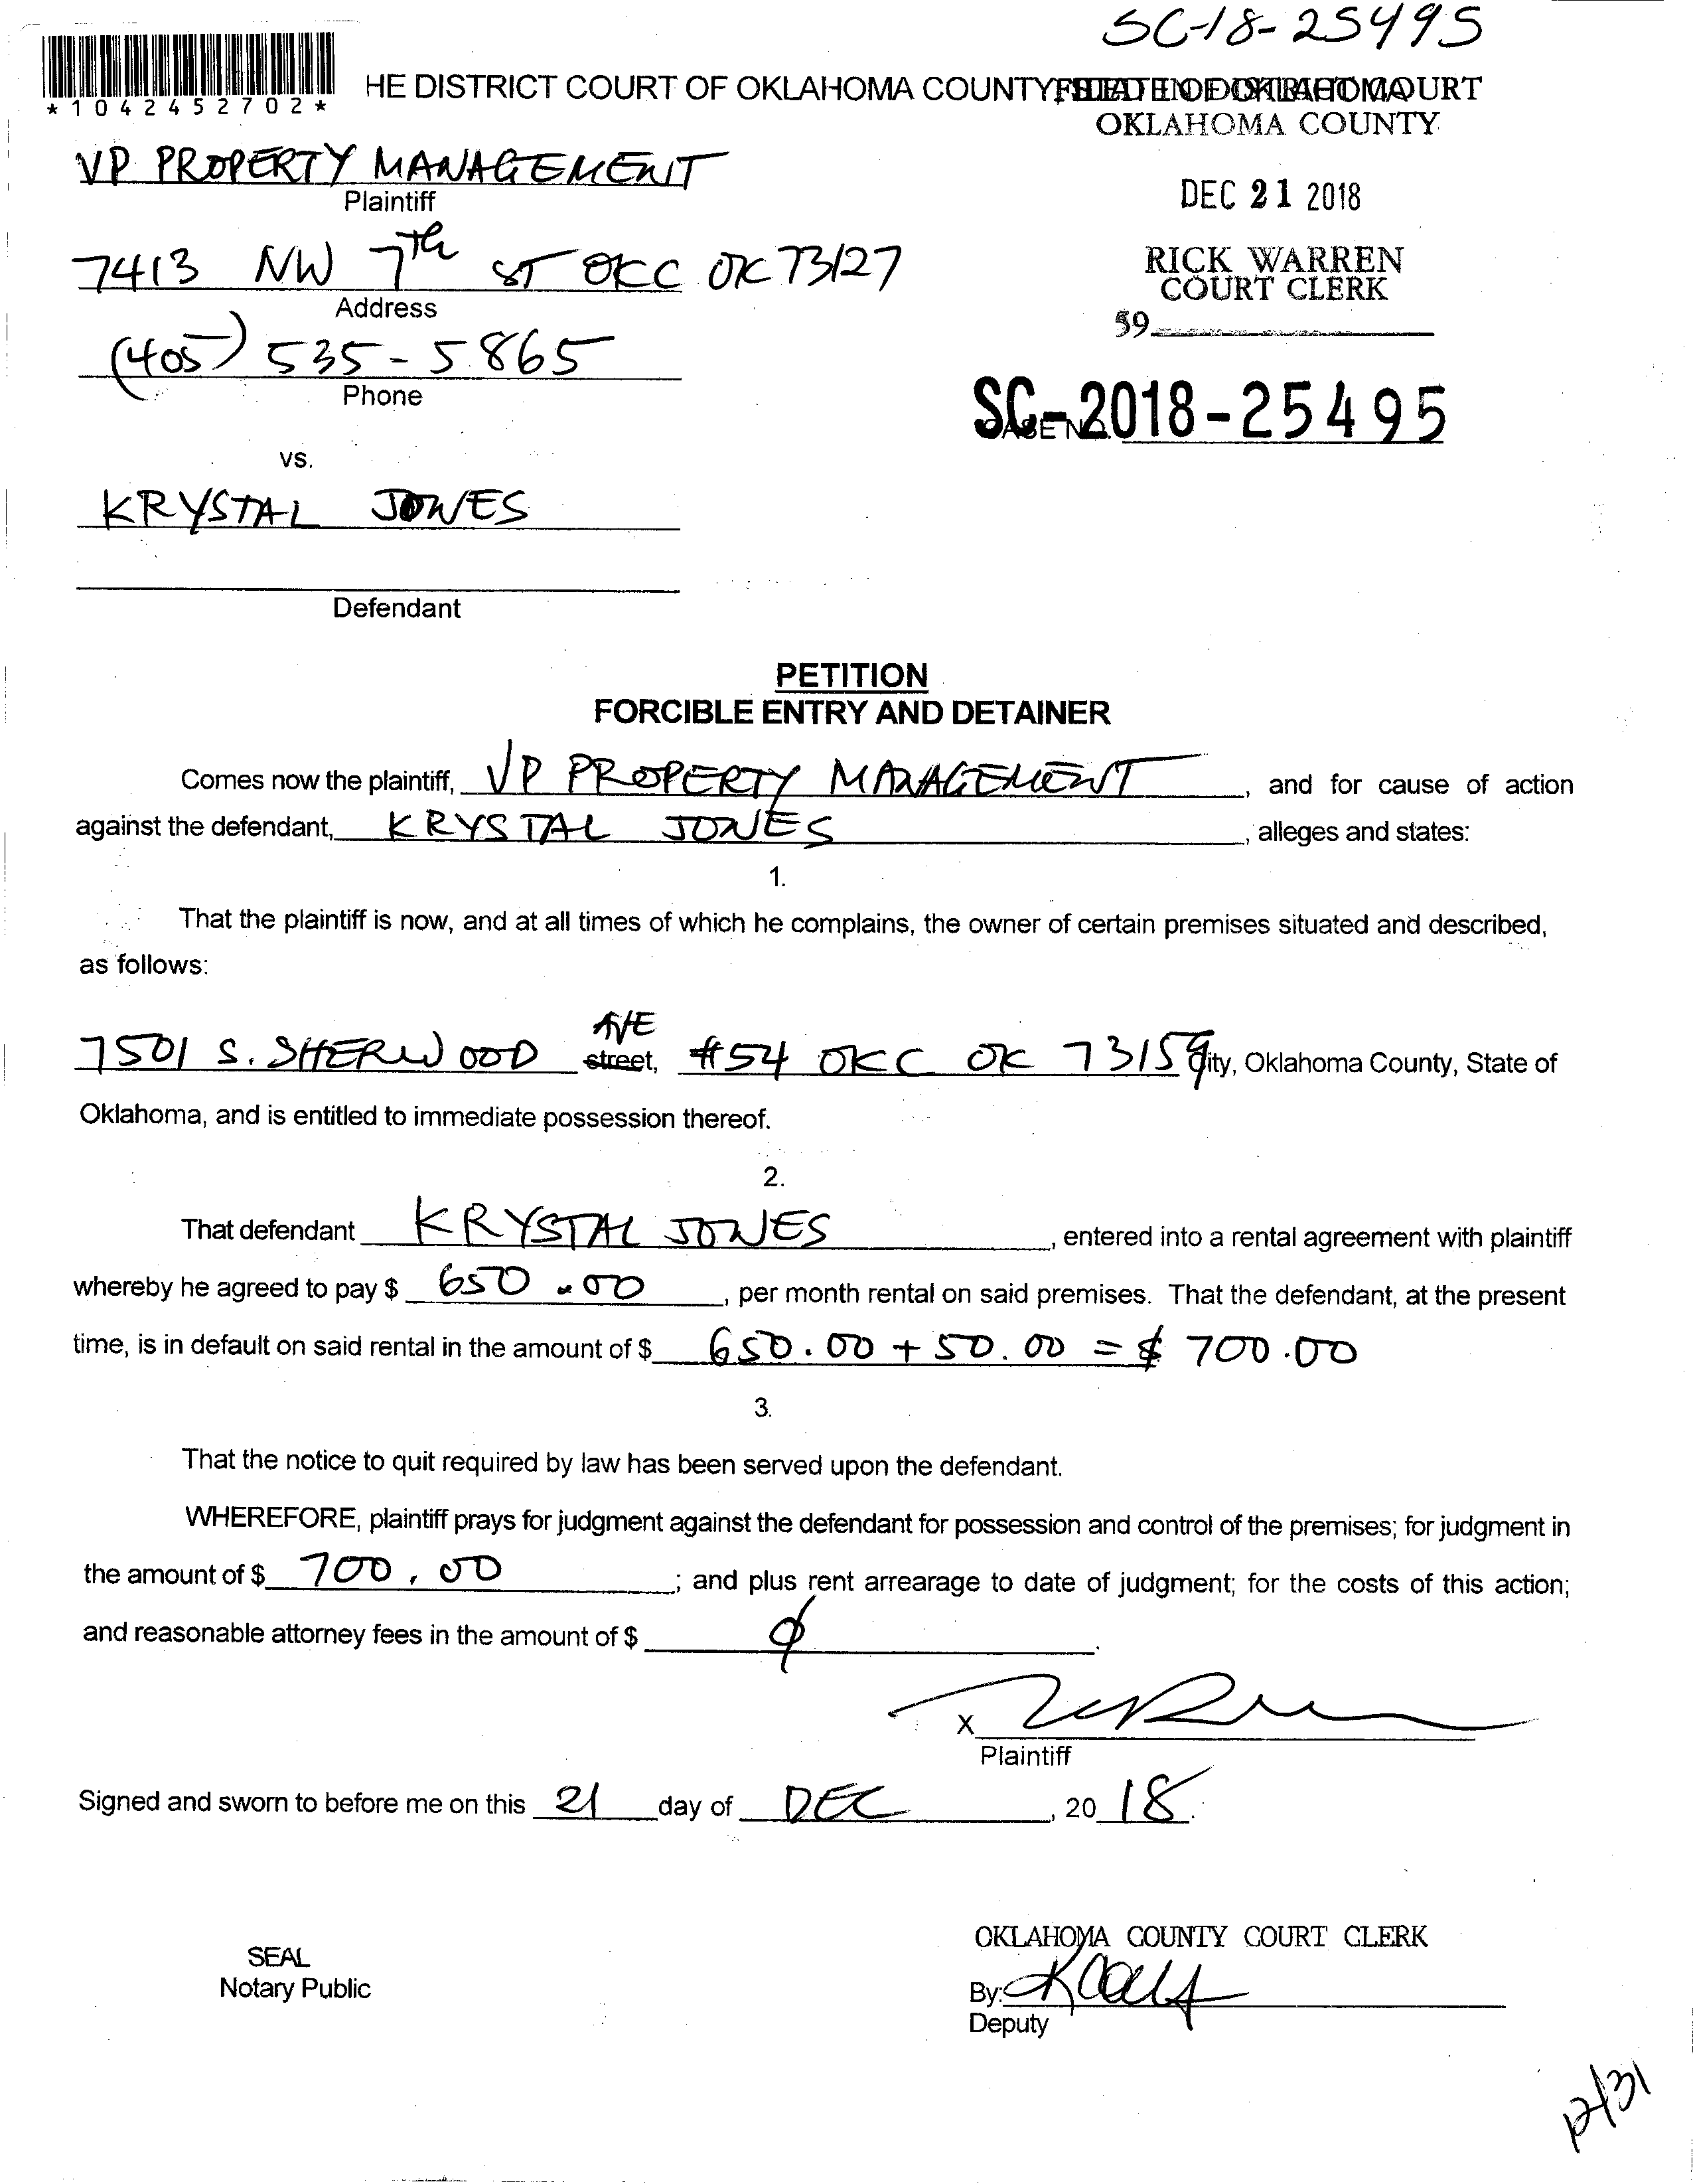 SC-18-25495
*1042452702*
HE DISTRICT COURT OF OKLAHOMA COUNTY
OKLAHOMA COUNTY
VP PROPERTY MANAGEMENT
Plaintiff
DEC 21 2018
7413 NW 7th ST OKC OK 73127
Address
RICK WARREN
COURT CLERK
59
(405) 535-5865
Phone
SC-2018-25495
vs.
KRYSTAL JONES
Defendant
PETITION
FORCIBLE ENTRY AND DETAINER
Comes now the plaintiff, VP PROPERTY MANAGEMENT, and for cause of action
against the defendant, KRYSTAL JONES, alleges and states:
1.
That the plaintiff is now, and at all times of which he complains, the owner of certain premises situated and described,
as follows:
AVE
7501 S. SHERWOOD street, #54 OKC OK 73159 City, Oklahoma County, State of
Oklahoma, and is entitled to immediate possession thereof.
2.
That defendant KRYSTAL JONES, entered into a rental agreement with plaintiff
whereby he agreed to pay $ 650.00, per month rental on said premises. That the defendant, at the present
time, is in default on said rental in the amount of $ 650.00 + 50.00 = $ 700.00
3.
That the notice to quit required by law has been served upon the defendant.
WHEREFORE, plaintiff prays for judgment against the defendant for possession and control of the premises; for judgment in
the amount of $ 700.00; and plus rent arrearage to date of judgment; for the costs of this action;
and reasonable attorney fees in the amount of $ ∅.
X
Plaintiff
Signed and sworn to before me on this 21 day of DEC, 20 18.
OKLAHOMA COUNTY COURT CLERK
SEAL
Notary Public
By:
Deputy
12/31